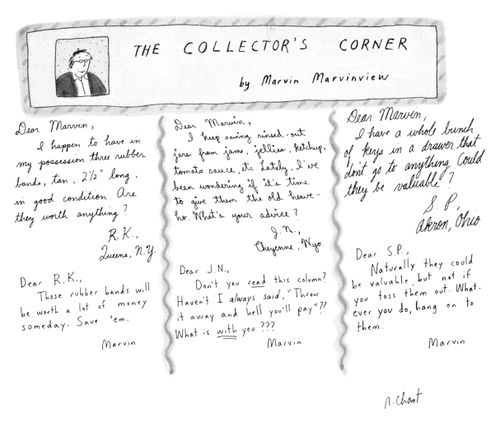 THE COLLECTOR'S CORNER
by Marvin Marvinview
Dear Marvin,
I happen to have in
my possession three rubber
bands, tan, 2½" long,
in good condition. Are
they worth anything?
R.K.,
Queens, N.Y.
Dear R.K.,
Those rubber bands will
be worth a lot of money
someday. Save 'em.
Marvin
Dear Marvin,
I keep saving rinsed-out
jars from jams, jellies, ketchup,
tomato sauce, etc. Lately, I've
been wondering if it's time
to give them the old heave-
ho. What's your advice?
J.N.,
Cheyenne, Wyo.
Dear J.N.,
Don't you read this column?
Haven't I always said, "Throw
it away and hell you'll pay"??
What is with you ???
Marvin
Dear Marvin,
I have a whole bunch
of keys in a drawer that
don't go to anything. Could
they be valuable?
S.P.,
Akron, Ohio
Dear S.P.,
Naturally they could
be valuable, but not if
you toss them out. What-
ever you do, hang on to
them.
Marvin
R. Chast